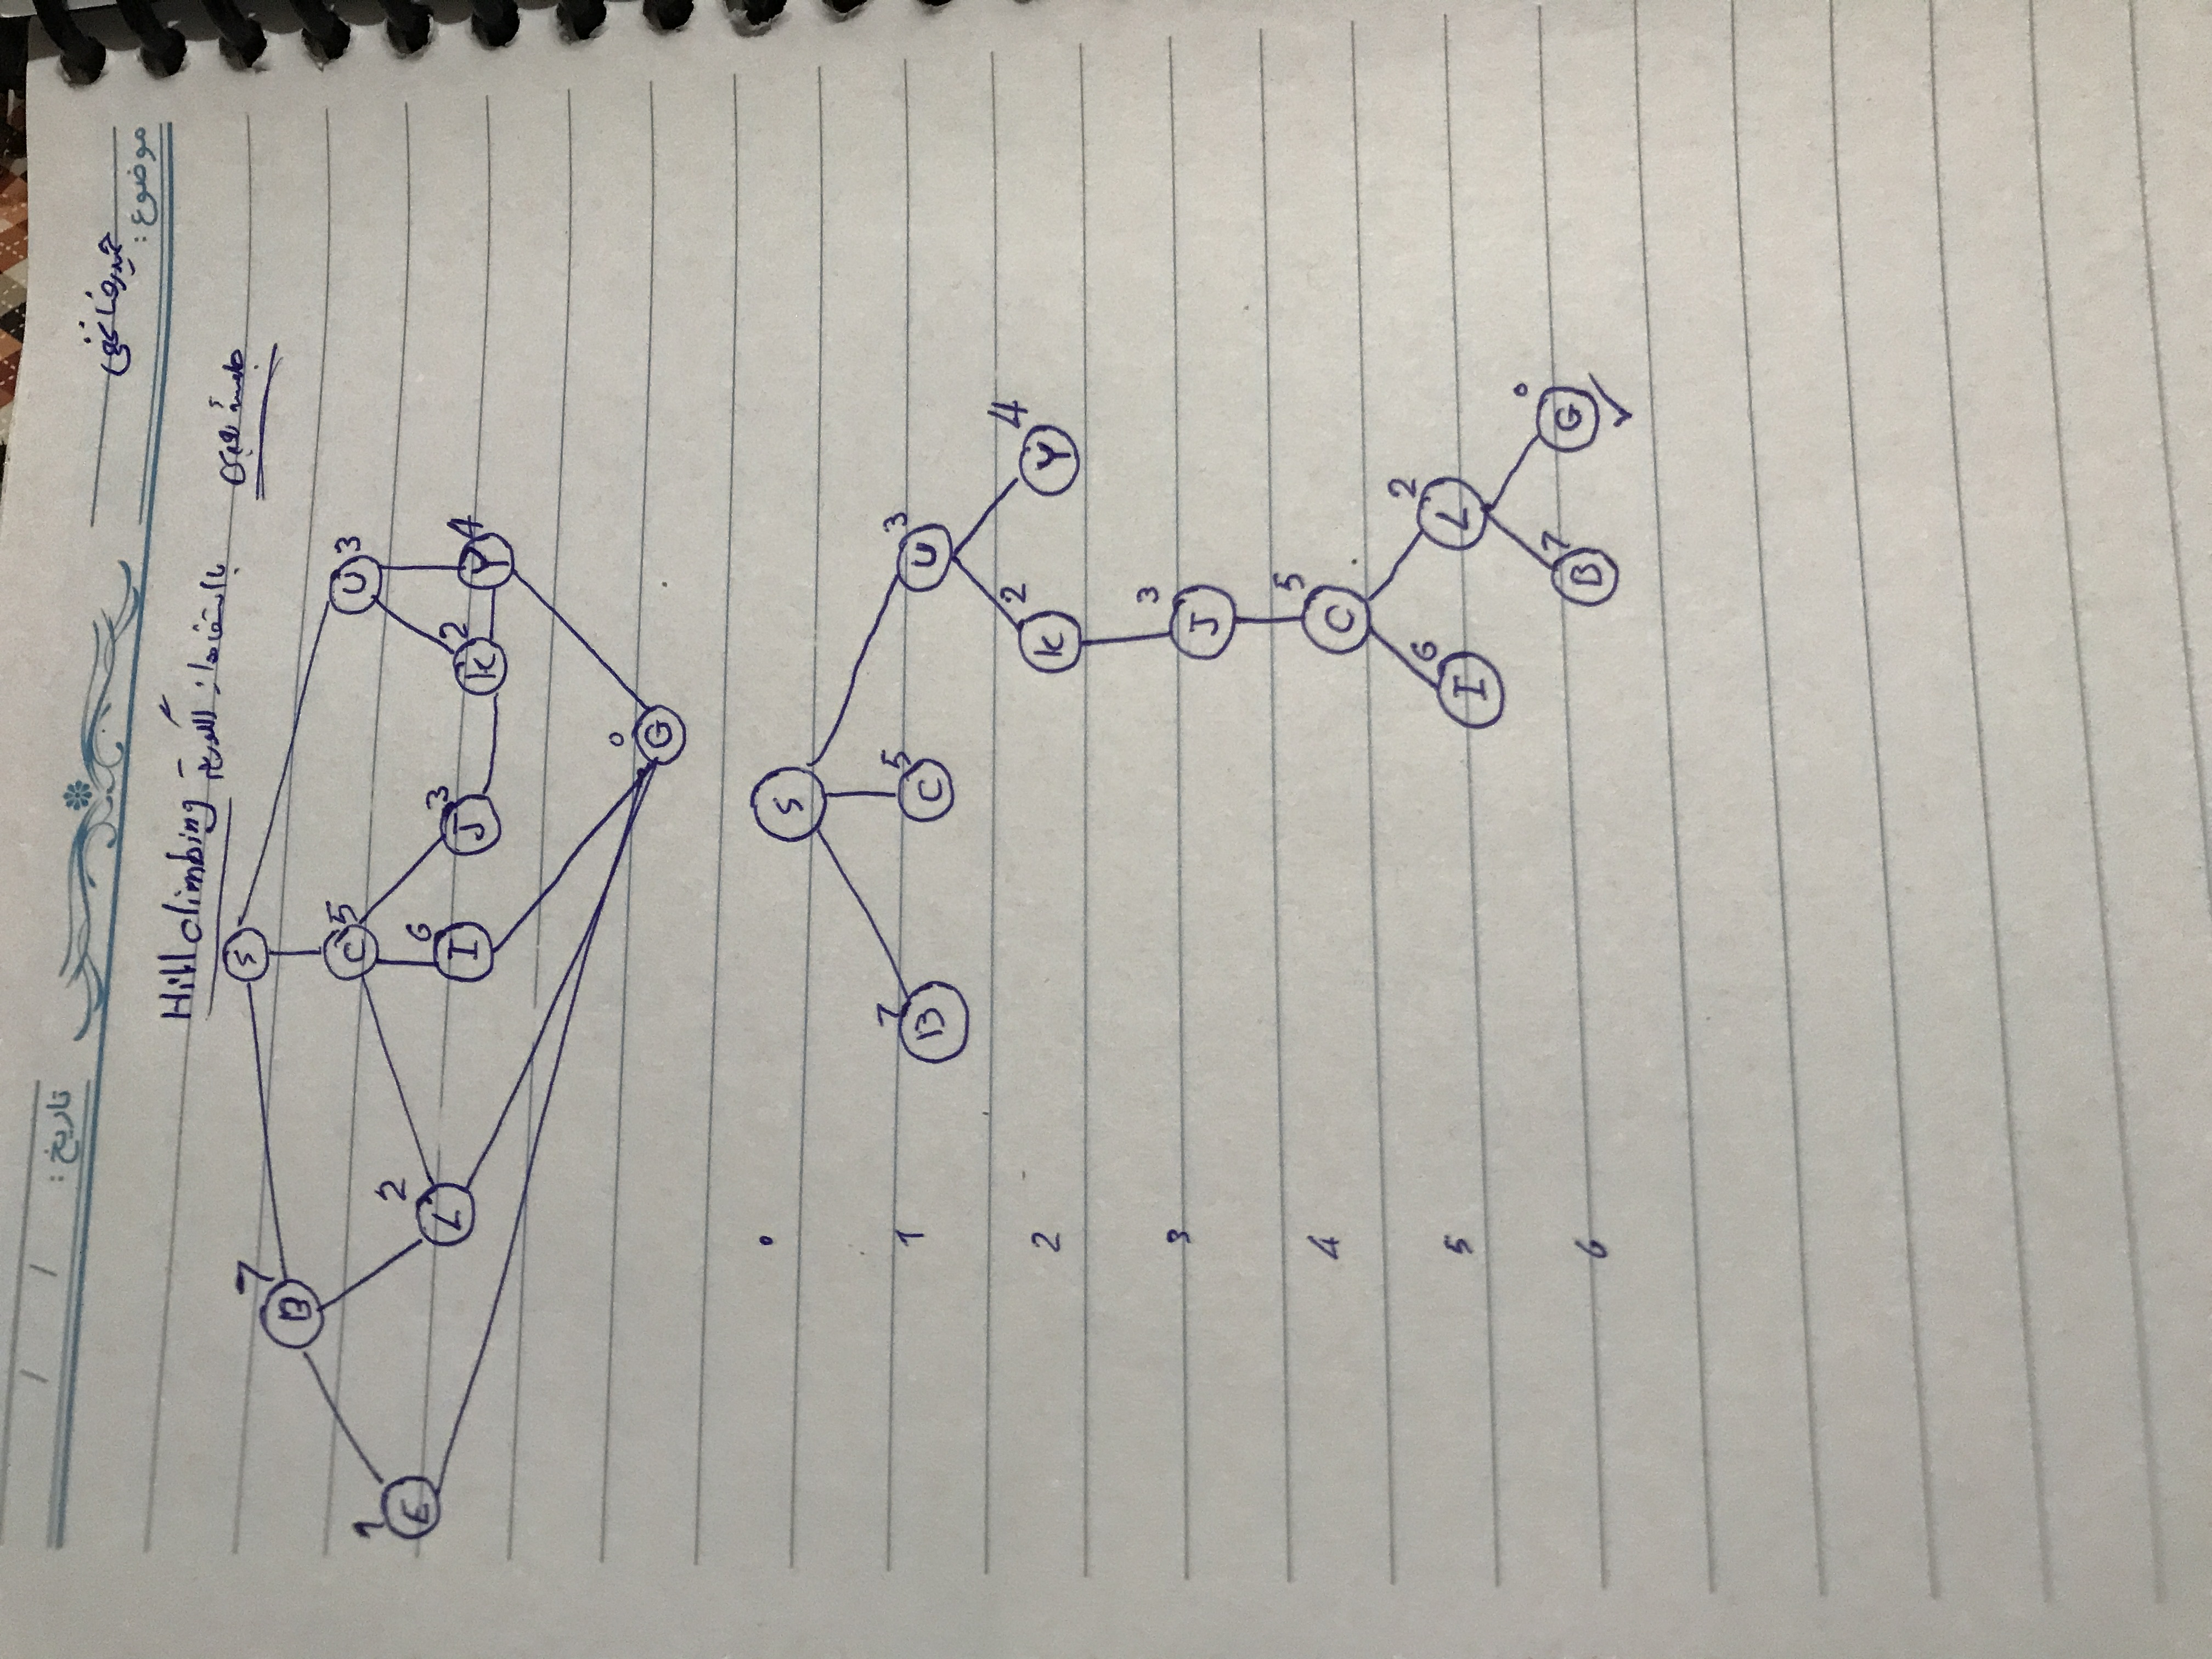 تاریخ: / /
حمیدرضا نجفی
موضوع:
جلسهٔ بعدی با استفاده از الگوریتم Hill climbing
S
B 7
C 5
U 3
E 1
L 2
I 6
J 3
K 2
Y 4
G 0
0 S
1 B 7 C 5 U 3
2 K 2 Y 4
3 J 3
4 C 5
5 I 6 L 2
6 B 7 G 0 ✓